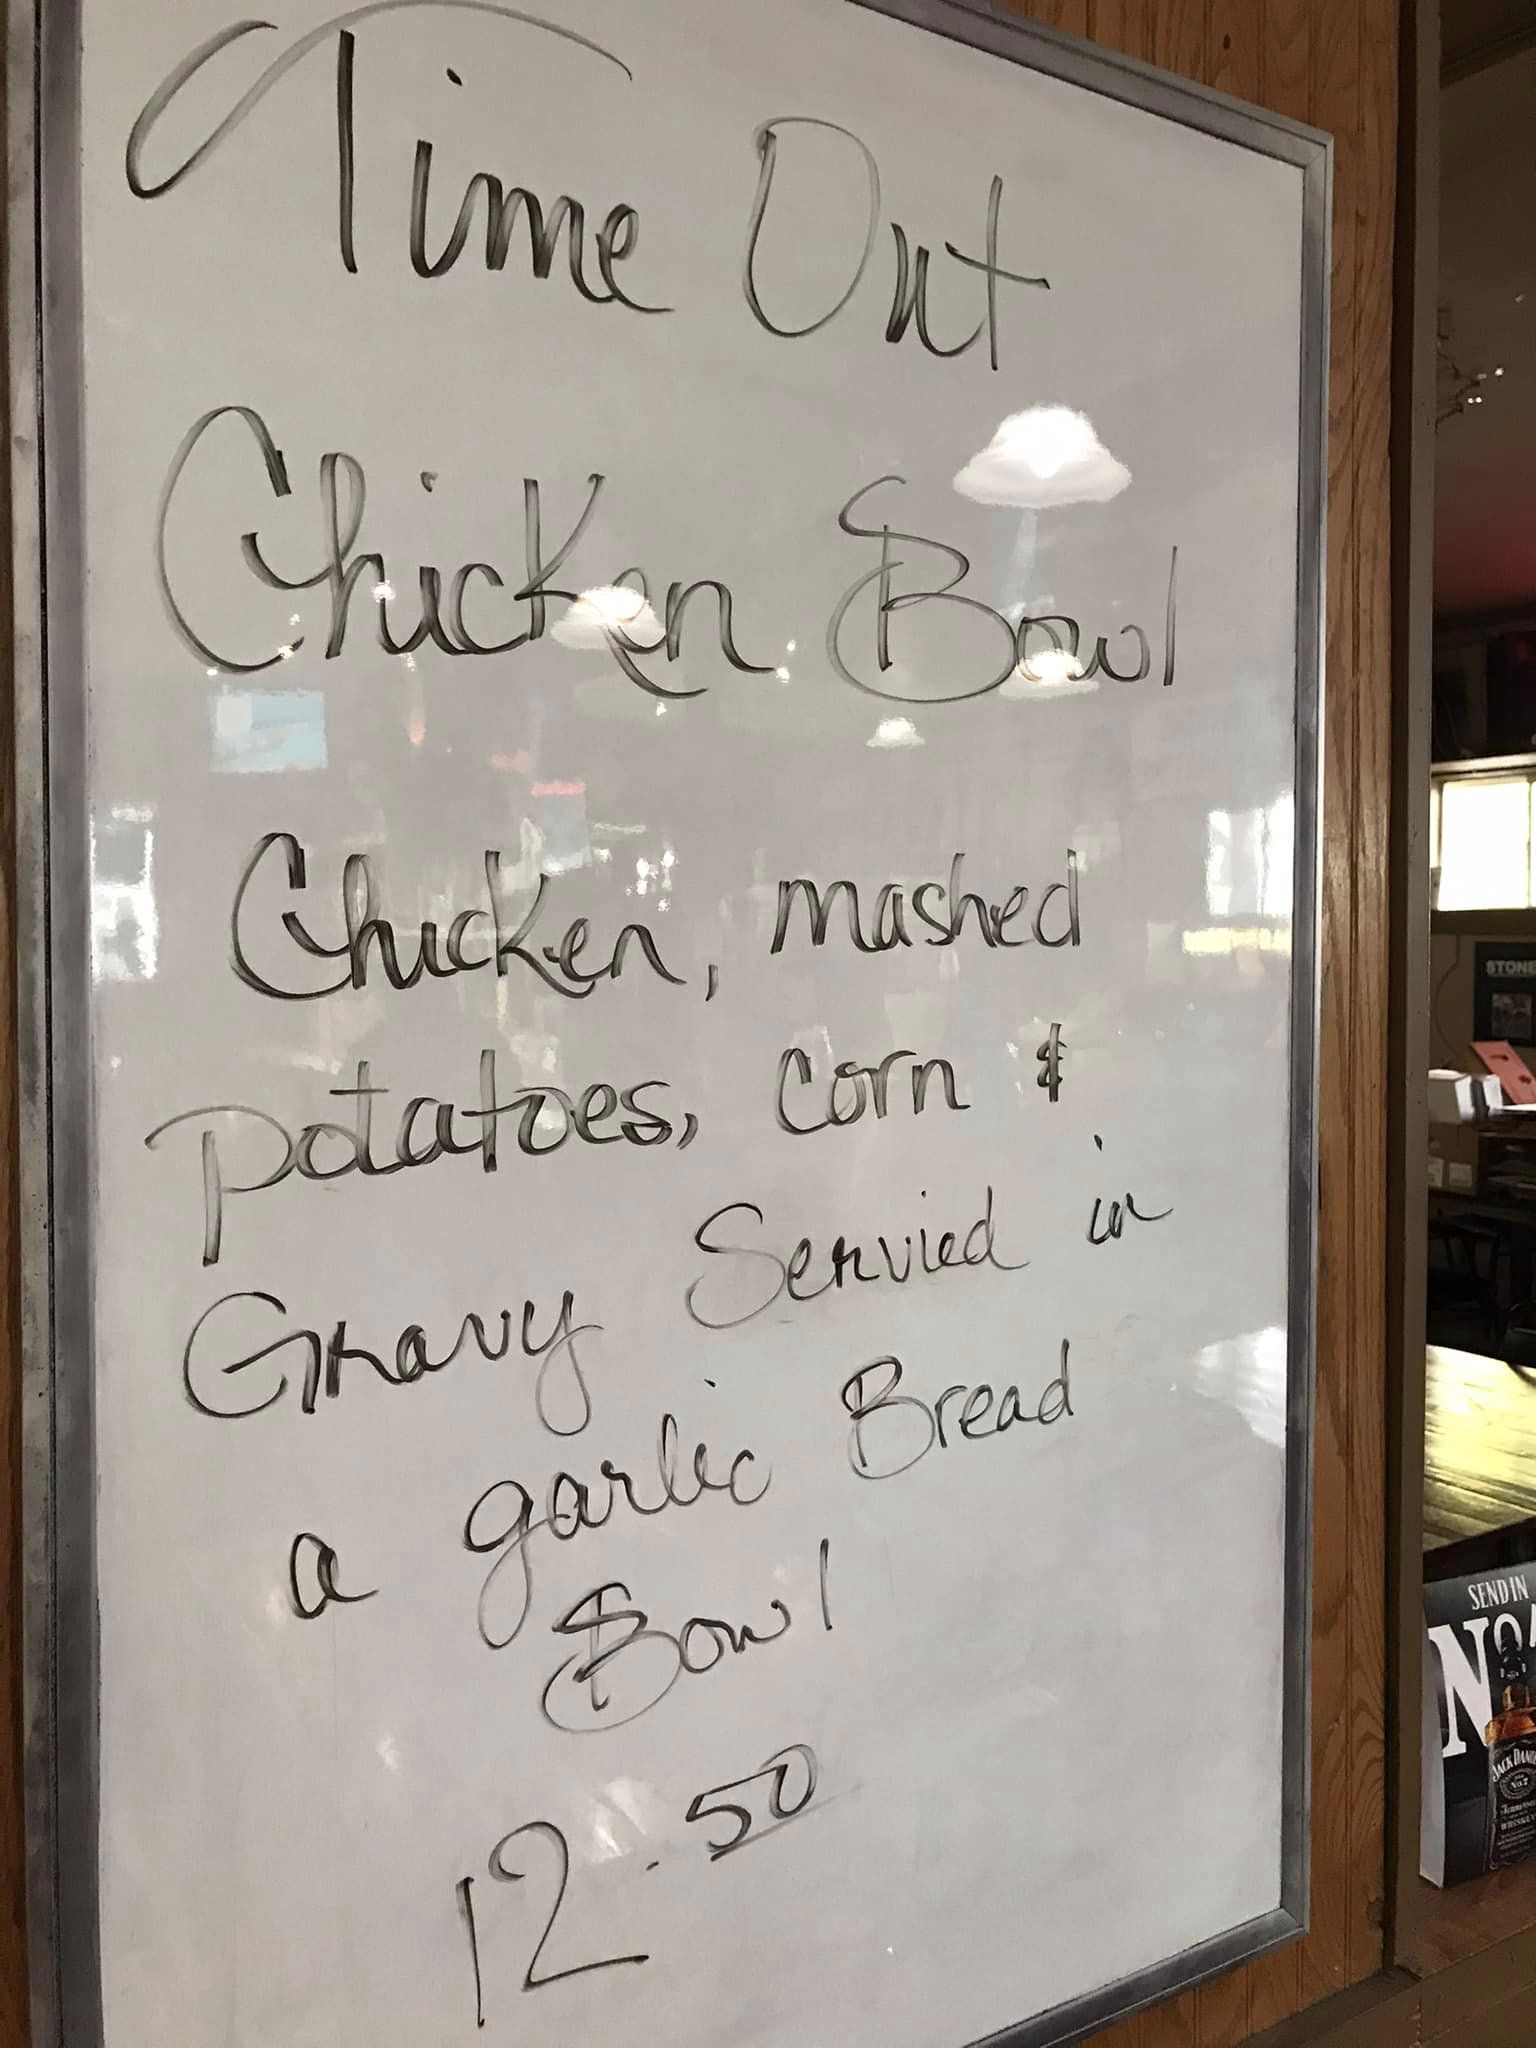 Time Out
Chicken Bowl
Chicken, mashed
potatoes, corn &
Gravy Servied in
a garlic Bread
Bowl
12.50
STONE
SEND IN
JACK DANIEL
No. 7
Tennessee
WHISKEY